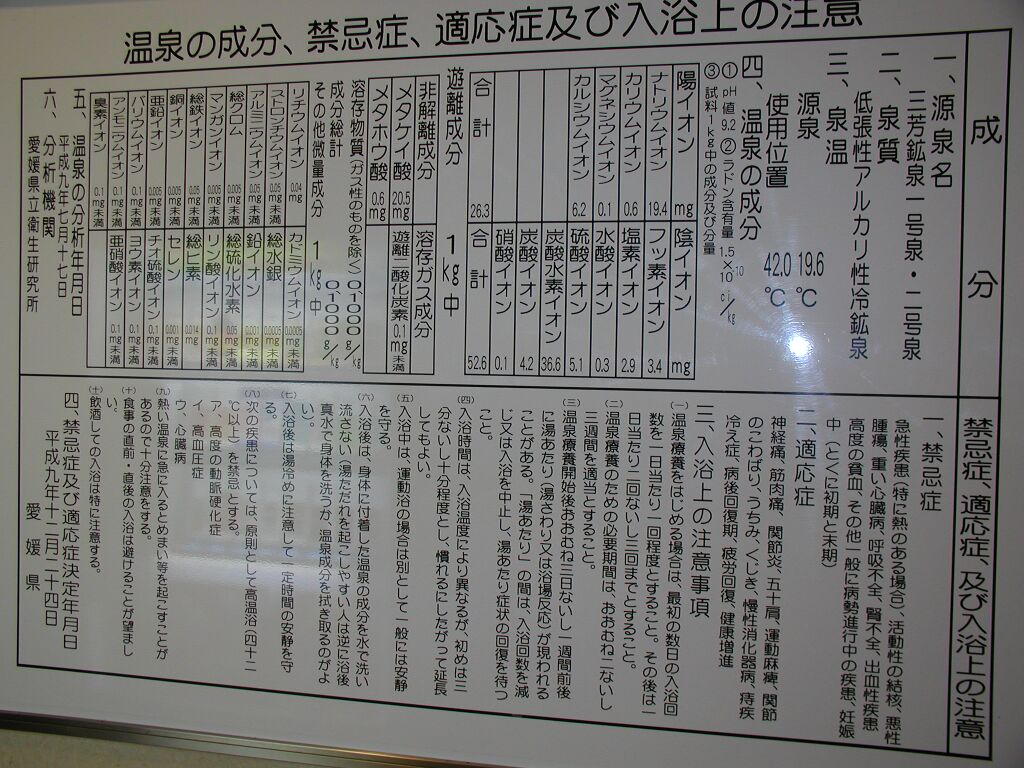 温泉の成分、禁忌症、適応症及び入浴上の注意
成分
一、源泉名
三芳鉱泉一号泉・二号泉
二、泉質
低張性アルカリ性冷鉱泉
三、泉温
源泉 19.6 ℃
使用位置 42.0 ℃
四、温泉の成分
① pH値 9.2 ② ラドン含有量 1.5×10 ci/kg
③ 試料1kg中の成分及び分量
陽イオン mg 陰イオン mg
ナトリウムイオン 19.4 フッ素イオン 3.4
カリウムイオン 0.6 塩素イオン 2.9
マグネシウムイオン 0.1 水酸イオン 0.3
カルシウムイオン 6.2 硫酸イオン 5.1
炭酸水素イオン 36.6
炭酸イオン 4.2
硝酸イオン 0.1
合計 26.3 合計 52.6
遊離成分 1kg中
非解離成分 溶存ガス成分
メタケイ酸 20.5mg 遊離二酸化炭素 0.1mg未満
メタホウ酸 0.6mg
溶存物質(ガス性のものを除く) 0.1000g/kg
成分総計 0.1000g/kg
その他微量成分 1kg中
リチウムイオン 0.04mg カドミウムイオン 0.0005mg未満
ストロンチウムイオン 0.1mg未満 総水銀 0.0005mg未満
アルミニウムイオン 0.05mg未満 鉛イオン 0.001mg未満
総クロム 0.005mg未満 総硫化水素 0.05mg未満
マンガンイオン 0.005mg未満 リン酸イオン 0.1mg未満
総鉄イオン 0.1mg未満 総ヒ素 0.014mg
銅イオン 0.005mg未満 セレン 0.001mg未満
亜鉛イオン 0.005mg未満 チオ硫酸イオン 0.1mg未満
バリウムイオン 0.1mg未満 ヨウ素イオン 0.1mg未満
アンモニウムイオン 0.1mg未満 亜硝酸イオン 0.1mg未満
臭素イオン 0.1mg未満
五、温泉の分析年月日
平成九年七月十七日
六、分析機関
愛媛県立衛生研究所
禁忌症、適応症、及び入浴上の注意
一、禁忌症
急性疾患(特に熱のある場合)、活動性の結核、悪性
腫瘍、重い心臓病、呼吸不全、腎不全、出血性疾患
高度の貧血、その他一般に病勢進行中の疾患、妊娠
中(とくに初期と末期)
二、適応症
神経痛、筋肉痛、関節炎、五十肩、運動麻痺、関節
のこわばり、うちみ、くじき、慢性消化器病、痔疾
冷え症、病後回復期、疲労回復、健康増進
三、入浴上の注意事項
(一)温泉療養をはじめる場合は、最初の数日の入浴回
数を一日当たり一回程度とすること。その後は一
日当たり二回ないし三回までとすること。
(二)温泉療養のための必要期間は、おおむね二ないし
三週間を適当とすること。
(三)温泉療養開始後おおむね三日ないし一週間前後
に湯あたり(湯さわり又は浴場反応)が現われる
ことがある。「湯あたり」の間は、入浴回数を減
じ又は入浴を中止し、湯あたり症状の回復を待つ
こと。
(四)入浴時間は、入浴温度により異なるが、初めは三
分ないし十分程度とし、慣れるにしたがって延長
してもよい。
(五)入浴中は、運動浴の場合は別として一般には安静
を守る。
(六)入浴後は、身体に付着した温泉の成分を水で洗い
流さない(湯ただれを起こしやすい人は逆に浴後
真水で身体を洗うか、温泉成分を拭き取るのがよ
い。
(七)入浴後は湯冷めに注意して一定時間の安静を守
る。
(八)次の疾患については、原則として高温浴(四十二
℃以上)を禁忌とする。
ア、高度の動脈硬化症
イ、高血圧症
ウ、心臓病
(九)熱い温泉に急に入るとめまい等を起こすことが
あるので十分注意をする。
(十)食事の直前・直後の入浴は避けることが望まし
い。
(十)飲酒しての入浴は特に注意する。
四、禁忌症及び適応症決定年月日
平成九年十二月二十四日
愛媛県